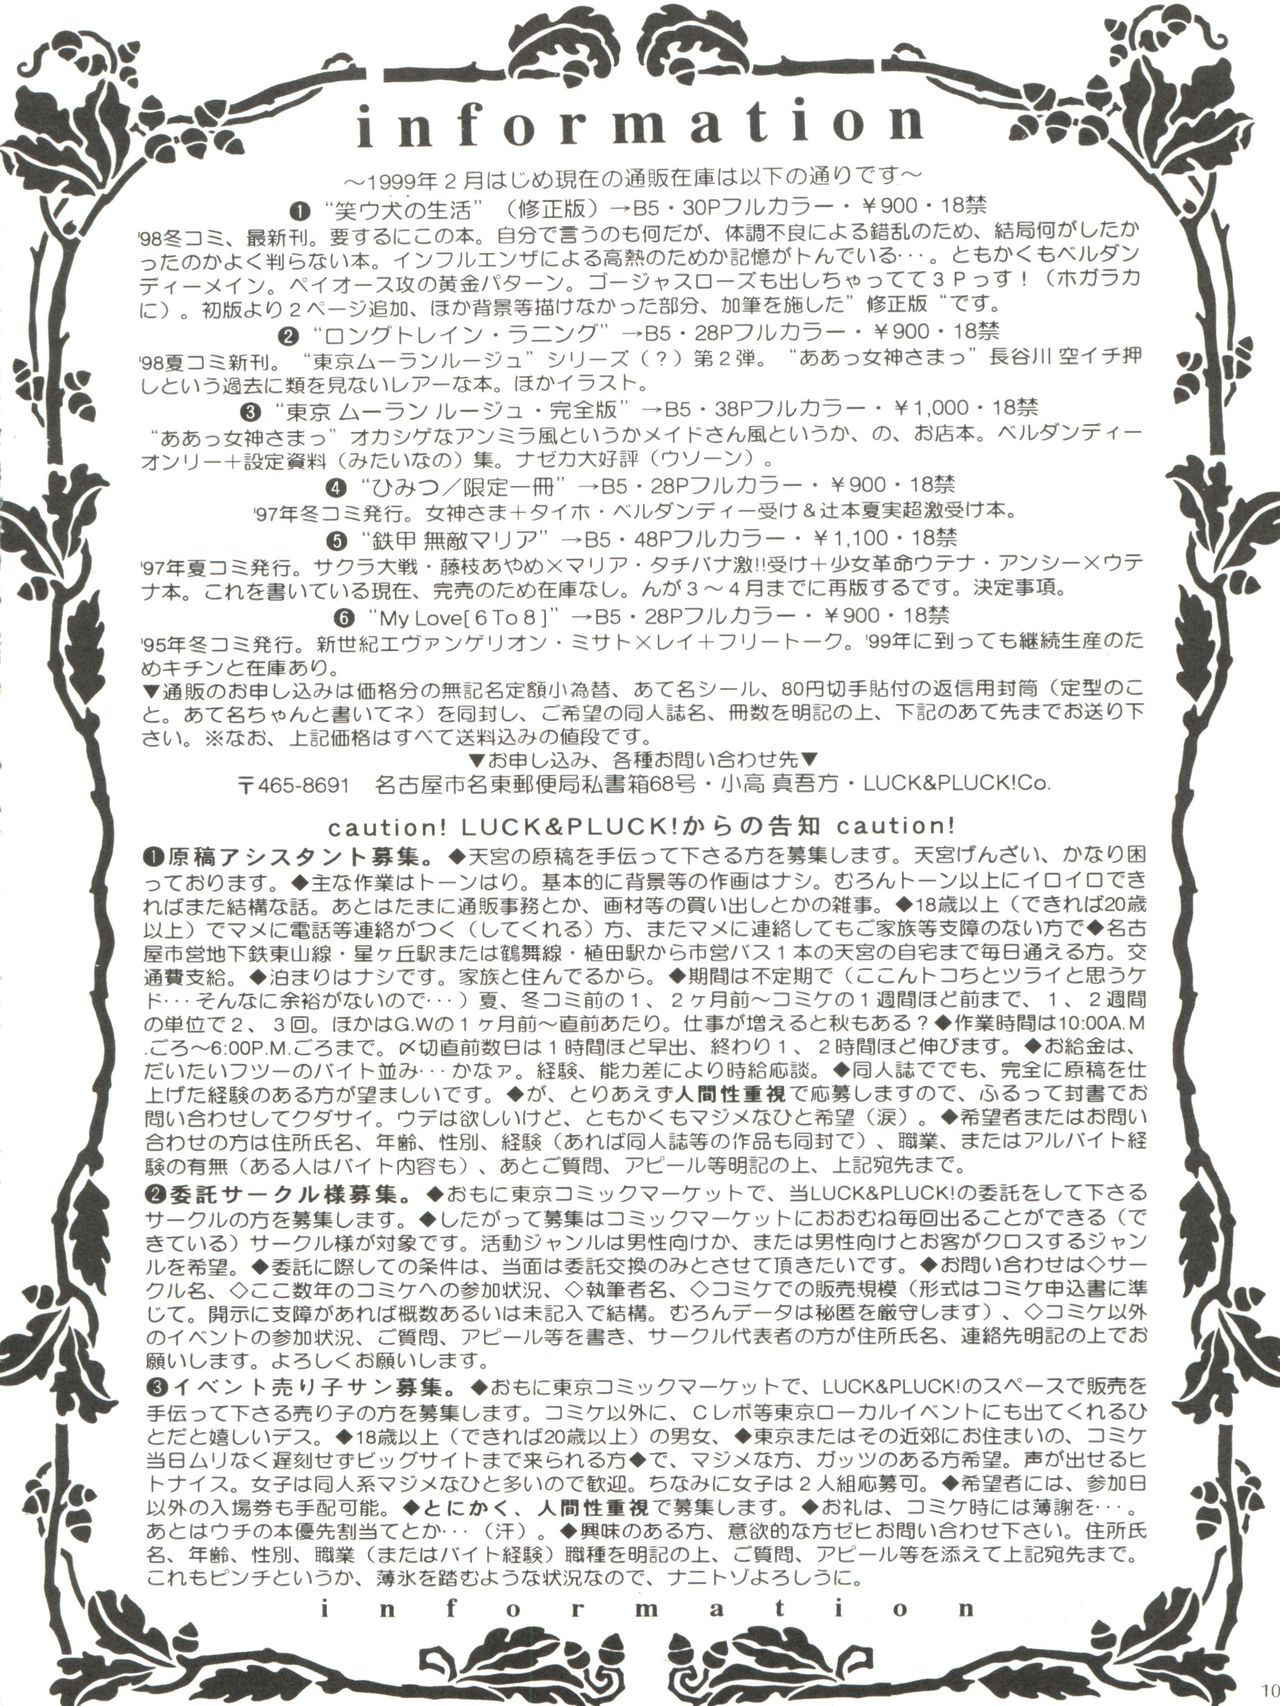 information
～1999年２月はじめ現在の通販在庫は以下の通りです～
❶ “笑ウ犬の生活”（修正版）→B5・30Pフルカラー・￥900・18禁
'98冬コミ、最新刊。要するにこの本。自分で言うのも何だが、体調不良による錯乱のため、結局何がしたか
ったのかよく判らない本。インフルエンザによる高熱のためか記憶がトんでいる…。ともかくもベルダン
ディーメイン。ペイオース攻の黄金パターン。ゴージャスローズも出しちゃってて３Ｐっす！（ホガラカ
に）。初版より２ページ追加、ほか背景等描けなかった部分、加筆を施した”修正版“です。
❷ “ロングトレイン・ラニング” →B5・28Pフルカラー・￥900・18禁
'98夏コミ新刊。“東京ムーランルージュ”シリーズ（？）第２弾。“ああっ女神さまっ”長谷川 空イチ押
しという過去に類を見ないレアーな本。ほかイラスト。
❸ “東京 ムーラン ルージュ・完全版” →B5・38Pフルカラー・￥1,000・18禁
“ああっ女神さまっ”オカシゲなアンミラ風というかメイドさん風というか、の、お店本。ベルダンディー
オンリー＋設定資料（みたいなの）集。ナゼカ大好評（ウソーン）。
❹ “ひみつ／限定一冊” →B5・28Pフルカラー・￥900・18禁
'97年冬コミ発行。女神さま＋タイホ・ベルダンディー受け＆辻本夏実超激受け本。
❺ “鉄甲 無敵マリア” →B5・48Pフルカラー・￥1,100・18禁
'97年夏コミ発行。サクラ大戦・藤枝あやめ×マリア・タチバナ激!!受け＋少女革命ウテナ・アンシー×ウテ
ナ本。これを書いている現在、完売のため在庫なし。んが３～４月までに再版するです。決定事項。
❻ “My Love[６To８]” →B5・28Pフルカラー・￥900・18禁
'95年冬コミ発行。新世紀エヴァンゲリオン・ミサト×レイ＋フリートーク。'99年に到っても継続生産のた
めキチンと在庫あり。
▼通販のお申し込みは価格分の無記名定額小為替、あて名シール、80円切手貼付の返信用封筒（定型のこ
と。あて名ちゃんと書いてネ）を同封し、ご希望の同人誌名、冊数を明記の上、下記のあて先までお送り下
さい。※なお、上記価格はすべて送料込みの値段です。
▼お申し込み、各種お問い合わせ先▼
〒465-8691　名古屋市名東郵便局私書箱68号・小高 真吾方・LUCK&PLUCK!Co.
caution! LUCK&PLUCK!からの告知 caution!
❶原稿アシスタント募集。◆天宮の原稿を手伝って下さる方を募集します。天宮げんざい、かなり困
っております。◆主な作業はトーンはり。基本的に背景等の作画はナシ。むろんトーン以上にイロイロでき
ればまた結構な話。あとはたまに通販事務とか、画材等の買い出しとかの雑事。◆18歳以上（できれば20歳
以上）でマメに電話等連絡がつく（してくれる）方、またマメに連絡してもご家族等支障のない方で◆名古
屋市営地下鉄東山線・星ヶ丘駅または鶴舞線・植田駅から市営バス１本の天宮の自宅まで毎日通える方。交
通費支給。◆泊まりはナシです。家族と住んでるから。◆期間は不定期で（ここんトコちとツライと思うケ
ド…そんなに余裕がないので…）夏、冬コミ前の１、２ヶ月前～コミケの１週間ほど前まで、１、２週間
の単位で２、３回。ほかはG.Wの１ヶ月前～直前あたり。仕事が増えると秋もある？◆作業時間は10:00A.M
.ごろ～6:00P.M.ごろまで。〆切直前数日は１時間ほど早出、終わり１、２時間ほど伸びます。◆お給金は、
だいたいフツーのバイト並み…かなァ。経験、能力差により時給応談。◆同人誌ででも、完全に原稿を仕
上げた経験のある方が望ましいです。◆が、とりあえず人間性重視で応募しますので、ふるって封書でお
問い合わせしてクダサイ。ウデは欲しいけど、ともかくもマジメなひと希望（涙）。◆希望者またはお問い
合わせの方は住所氏名、年齢、性別、経験（あれば同人誌等の作品も同封で）、職業、またはアルバイト経
験の有無（ある人はバイト内容も）、あとご質問、アピール等明記の上、上記宛先まで。
❷委託サークル様募集。◆おもに東京コミックマーケットで、当LUCK&PLUCK!の委託をして下さる
サークルの方を募集します。◆したがって募集はコミックマーケットにおおむね毎回出ることができる（で
きている）サークル様が対象です。活動ジャンルは男性向けか、または男性向けとお客がクロスするジャン
ルを希望。◆委託に際しての条件は、当面は委託交換のみとさせて頂きたいです。◆お問い合わせは◇サー
クル名、◇ここ数年のコミケへの参加状況、◇執筆者名、◇コミケでの販売規模（形式はコミケ申込書に準
じて。開示に支障があれば概数あるいは未記入で結構。むろんデータは秘匿を厳守します）、◇コミケ以外
のイベントの参加状況、ご質問、アピール等を書き、サークル代表者の方が住所氏名、連絡先明記の上でお
願いします。よろしくお願いします。
❸イベント売り子サン募集。◆おもに東京コミックマーケットで、LUCK&PLUCK!のスペースで販売を
手伝って下さる売り子の方を募集します。コミケ以外に、Ｃレボ等東京ローカルイベントにも出てくれるひ
とだと嬉しいデス。◆18歳以上（できれば20歳以上）の男女、◆東京またはその近郊にお住まいの、コミケ
当日ムリなく遅刻せずビッグサイトまで来られる方◆で、マジメな方、ガッツのある方希望。声が出せるヒ
トナイス。女子は同人系マジメなひと多いので歓迎。ちなみに女子は２人組応募可。◆希望者には、参加日
以外の入場券も手配可能。◆とにかく、人間性重視で募集します。◆お礼は、コミケ時には薄謝を…。
あとはウチの本優先割当てとか…（汗）。◆興味のある方、意欲的な方ゼヒお問い合わせ下さい。住所氏
名、年齢、性別、職業（またはバイト経験）職種を明記の上、ご質問、アピール等を添えて上記宛先まで。
これもピンチというか、薄氷を踏むような状況なので、ナニトゾよろしうに。
information
10